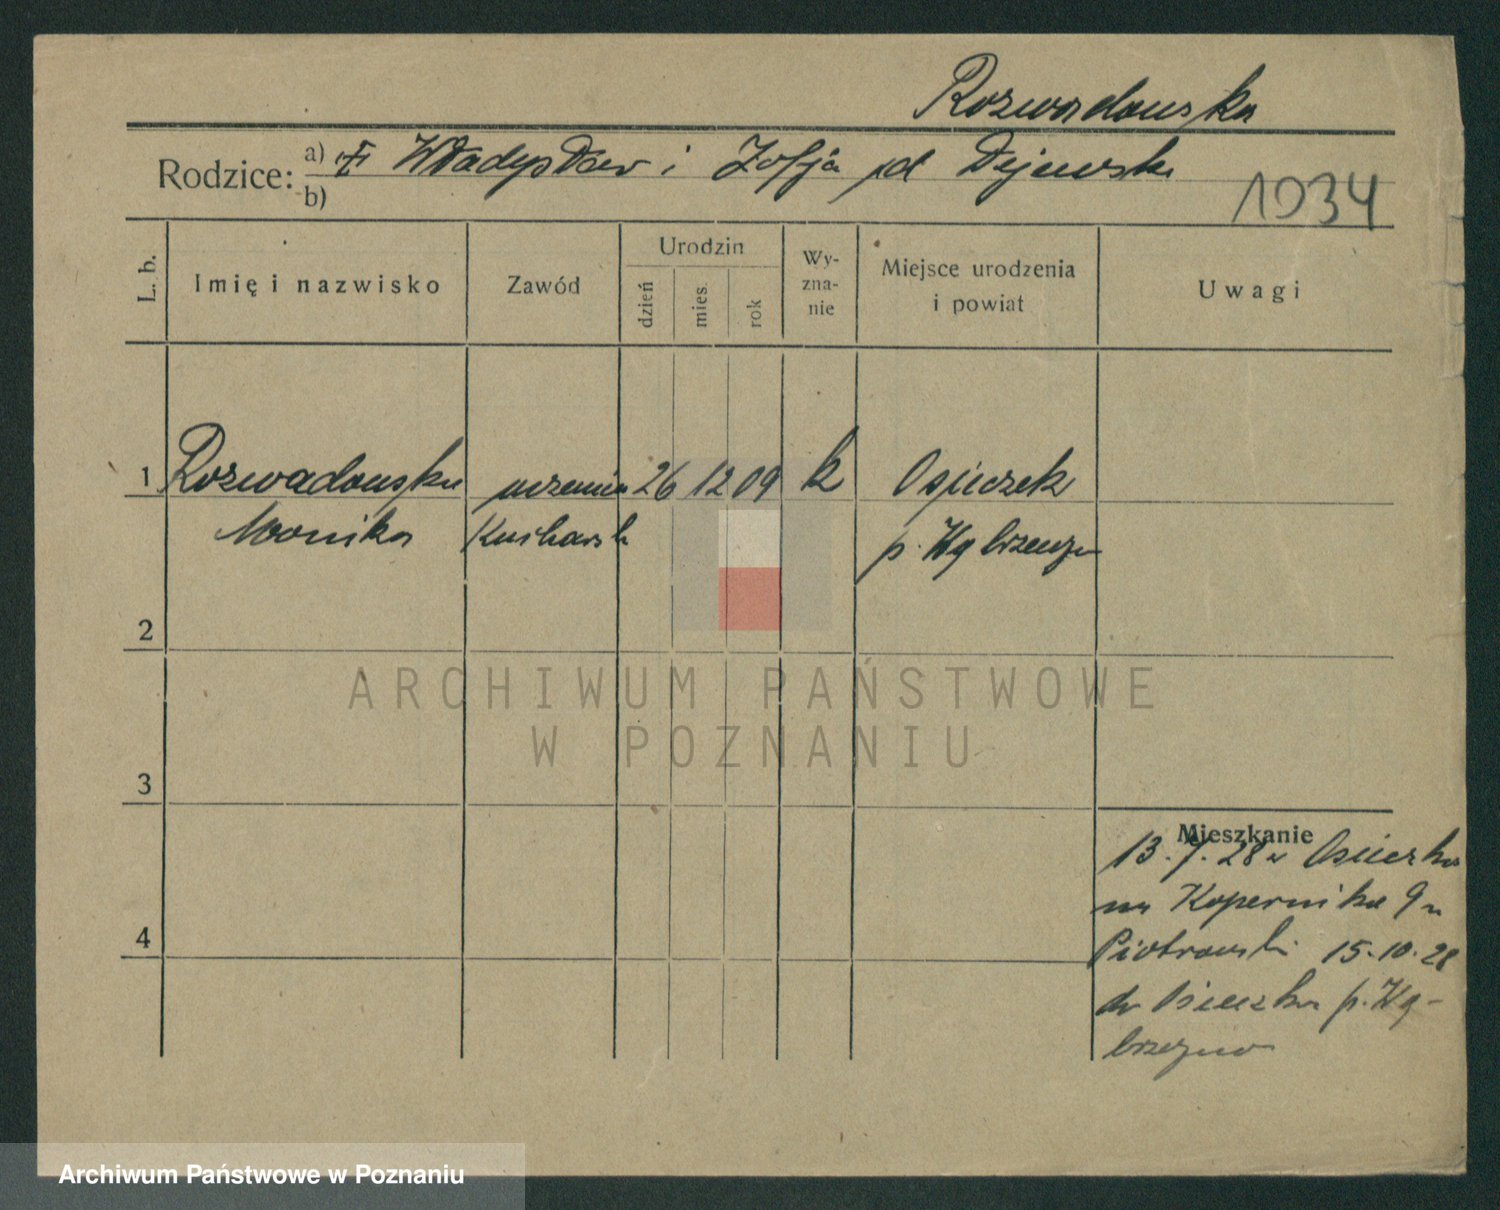 Rozwadowska
Rodzice: a) Władysław i Zofja d Dejewski
b)
1934
L. b.
Imię i nazwisko
Zawód
Urodzin
dzień
mies.
rok
Wy-
zna-
nie
Miejsce urodzenia
i powiat
Uwagi
1 Rozwadowska uczenia 26 12 09 k Osieczek
Monika Kucharsk p. Wąbrzeźn
2
ARCHIWUM PAŃSTWOWE
W POZNANIU
3
Mieszkanie
13.7.28 z Osieczka
na Kopernika 9 u
4
Piotrowski 15.10.28
do Osieczka p. Wą-
brzeźno
Archiwum Państwowe w Poznaniu